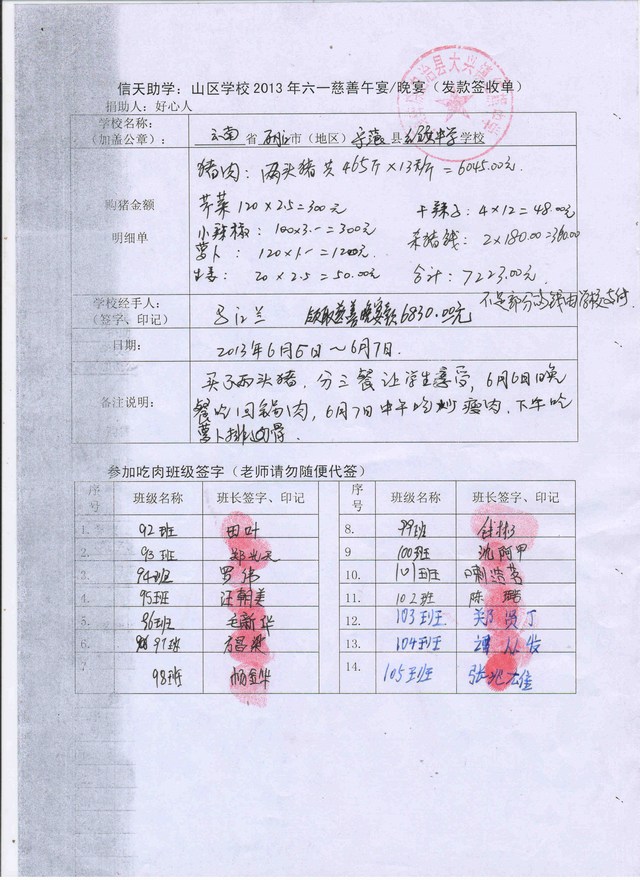 信天助学：山区学校2013年六一慈善午宴/晚宴（发款签收单）
捐助人：好心人
学校名称：
（加盖公章）：
云南省 市（地区）宁蒗县 中学学校
购猪金额
明细单
猪肉：两头猪共465斤×13元/斤=6045.00元
芹菜120×2.5=300元 干辣子：4×12=48.00元
小辣椒：100×3.=300元 杀猪钱：2×180.00=360.00
萝卜：120×1.=120元
生姜：20×2.5=50.00元 合计：7223.00元
学校经手人：
（签字、印记）
领取慈善晚宴款6830.00元 不足部分的钱由学校支付
日期：
2013年6月5日～6月7日.
备注说明：
买了两头猪，分三餐让学生享受，6月6日晚
餐吃回锅肉，6月7日中午吃炒瘦肉，下午吃
萝卜排骨.
参加吃肉班级签字（老师请勿随便代签）
序号 班级名称 班长签字、印记 序号 班级名称 班长签字、印记
1. 92班 田叶 8. 99班
2. 93班 郑光天 9 100班 沈阿甲
3. 94班 罗伟 10. 101班
4. 95班 汪朝美 11. 102班 陈
5. 96班 毛新华 12. 103班
6. 97班 13. 104班
7 98班 杨金华 14. 105班